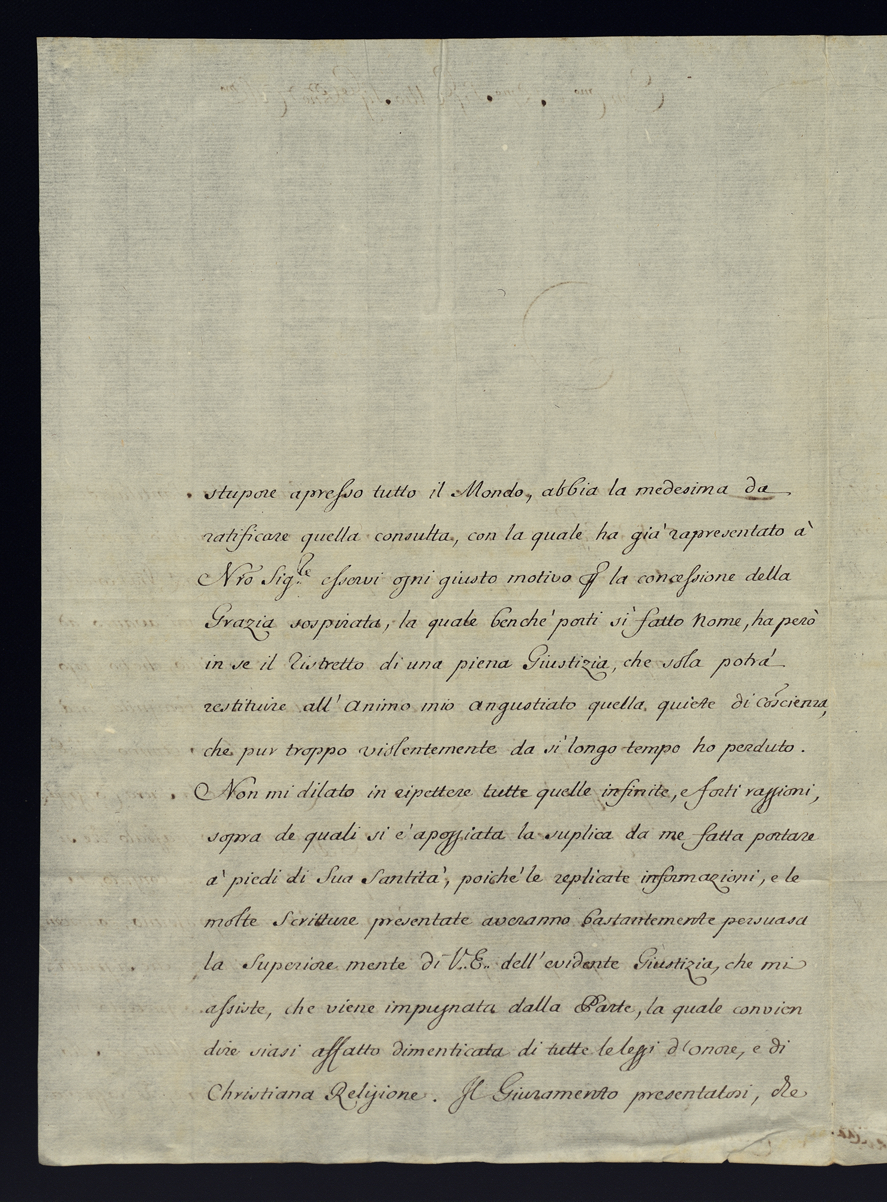 stupore apresso tutto il Mondo, abbia la medesima da
ratificare quella consulta, con la quale ha già rapresentato à
Nro Sig.re esservi ogni giusto motivo p la concessione della
Grazia sospirata, la quale benche' porti si fatto Nome, ha però
in se il Ristretto di una piena Giustizia, che sola potrà
restituire all' Animo mio angustiato quella quiete di coscienza,
che pur troppo violentemente da si longo tempo ho perduto.
Non mi dilato in ripettere tutte quelle infinite, e forti raggioni,
sopra de quali si e' apoggiata la suplica da me fatta portare
a' piedi di Sua Santita', poiche' le replicate informazioni, e le
molte Scritture presentate averanno bastantemente persuasa
la Superiore mente di V.E. dell' evidente Giustizia, che mi
assiste, che viene impugnata dalla Parte, la quale convien
dire siasi affatto dimenticata di tutte le leggi d' onore, e di
Christiana Religione. Il Giuramento presentatosi, che